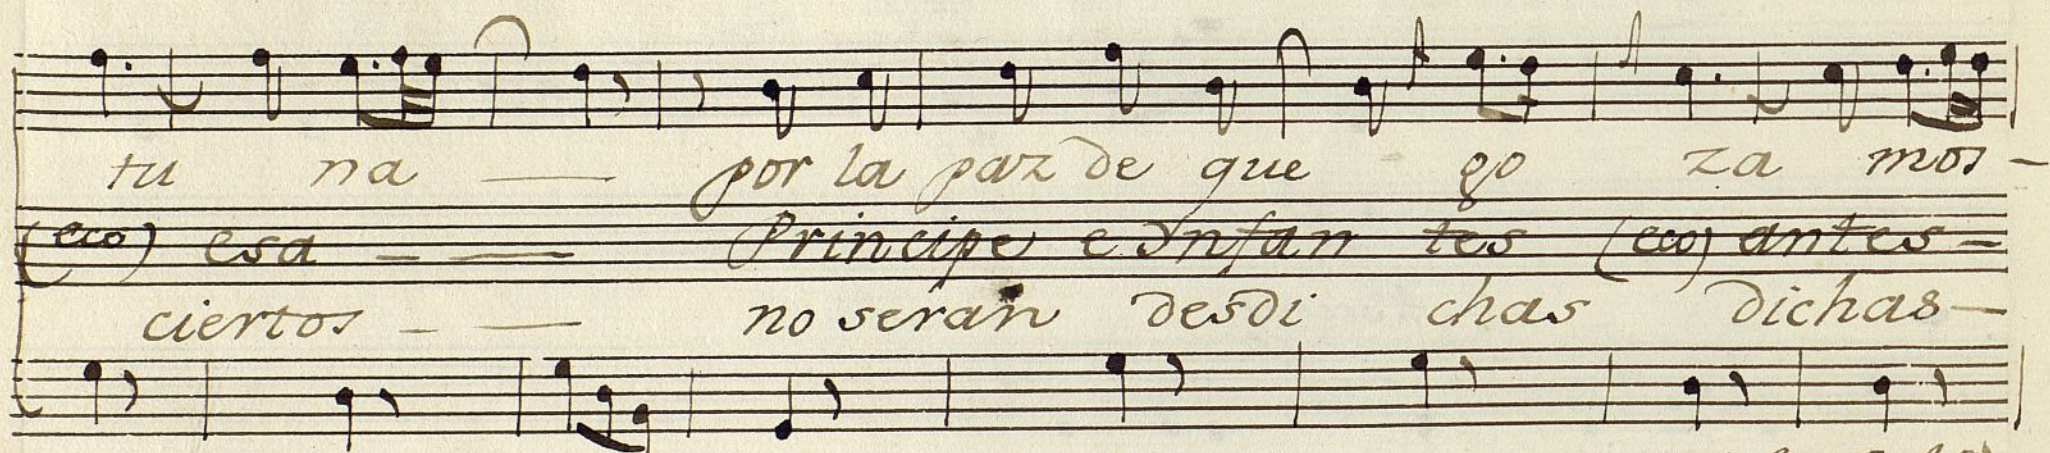 tu na — por la paz de que go za mos —
(eco) esa — — Principe e Ynfan tes (eco) antes —
ciertos — — no serán desdi chas dichas —